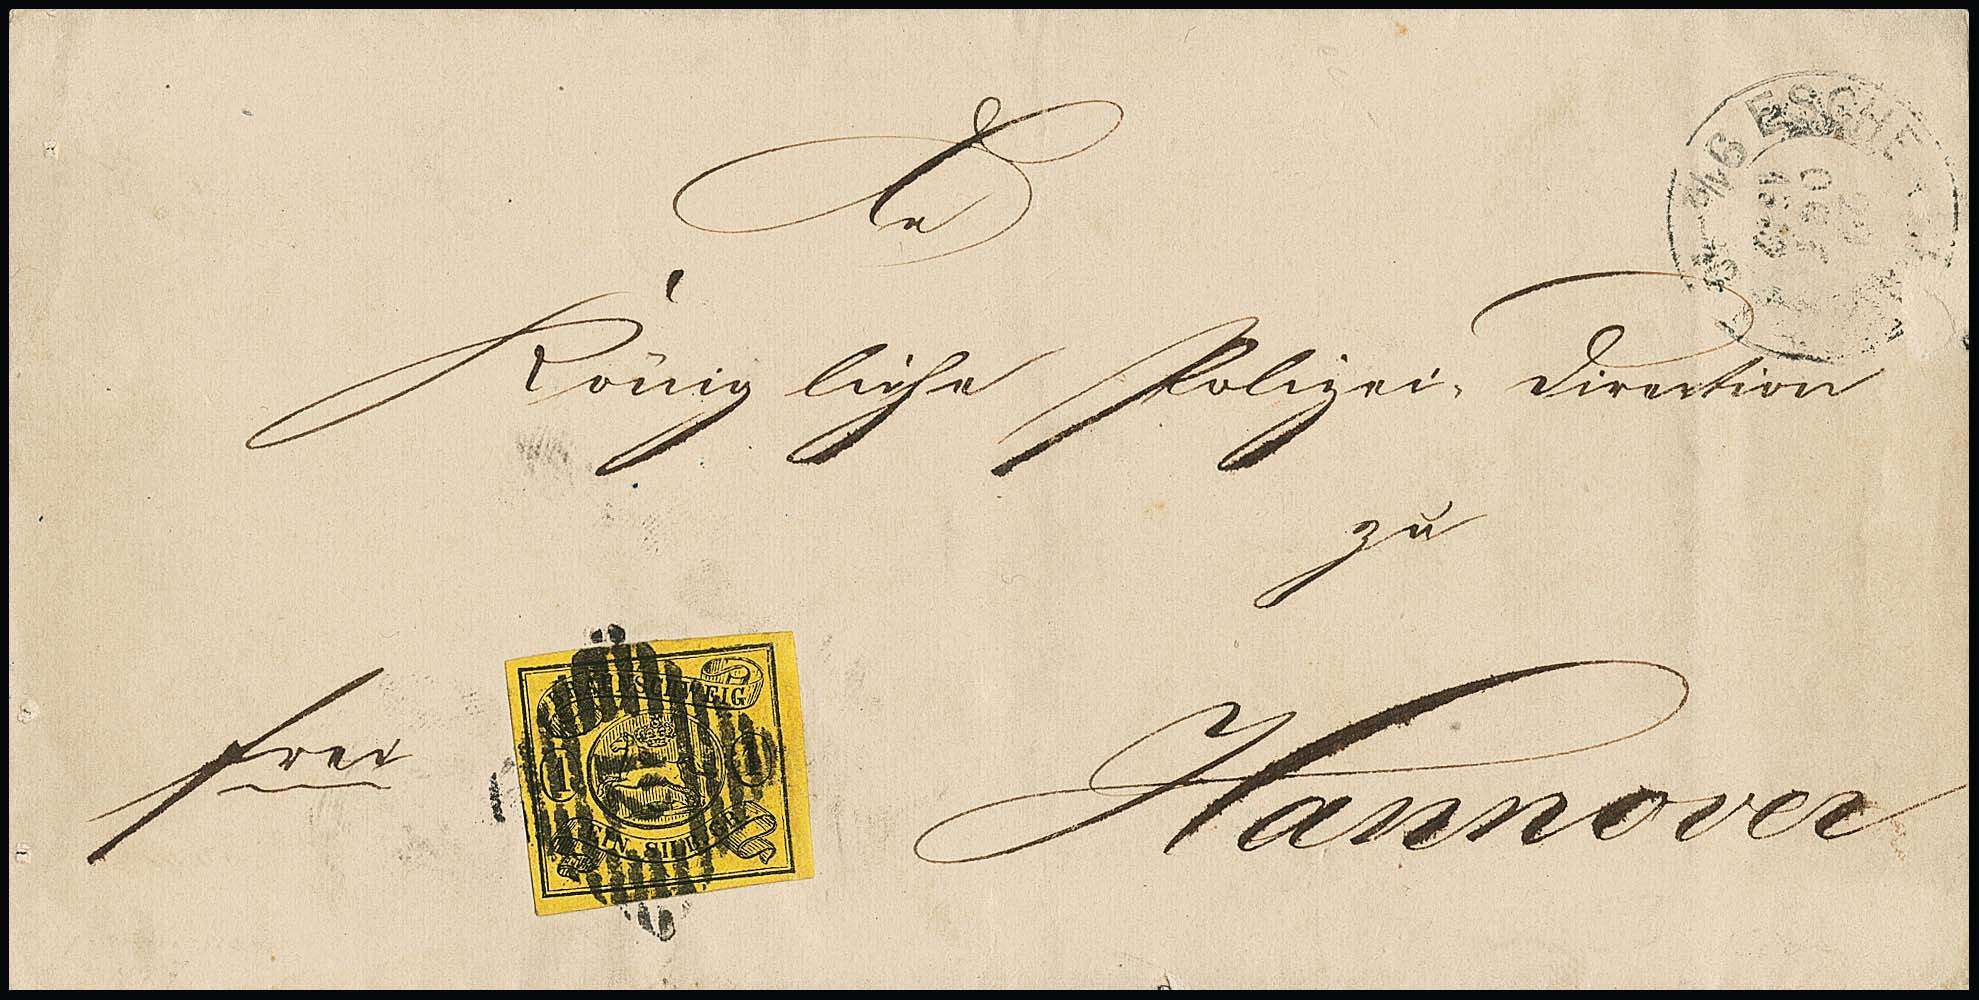 An
Königliche Polizei-Direction
zu
Hannover
frei
1 1
SILB
ESCHE